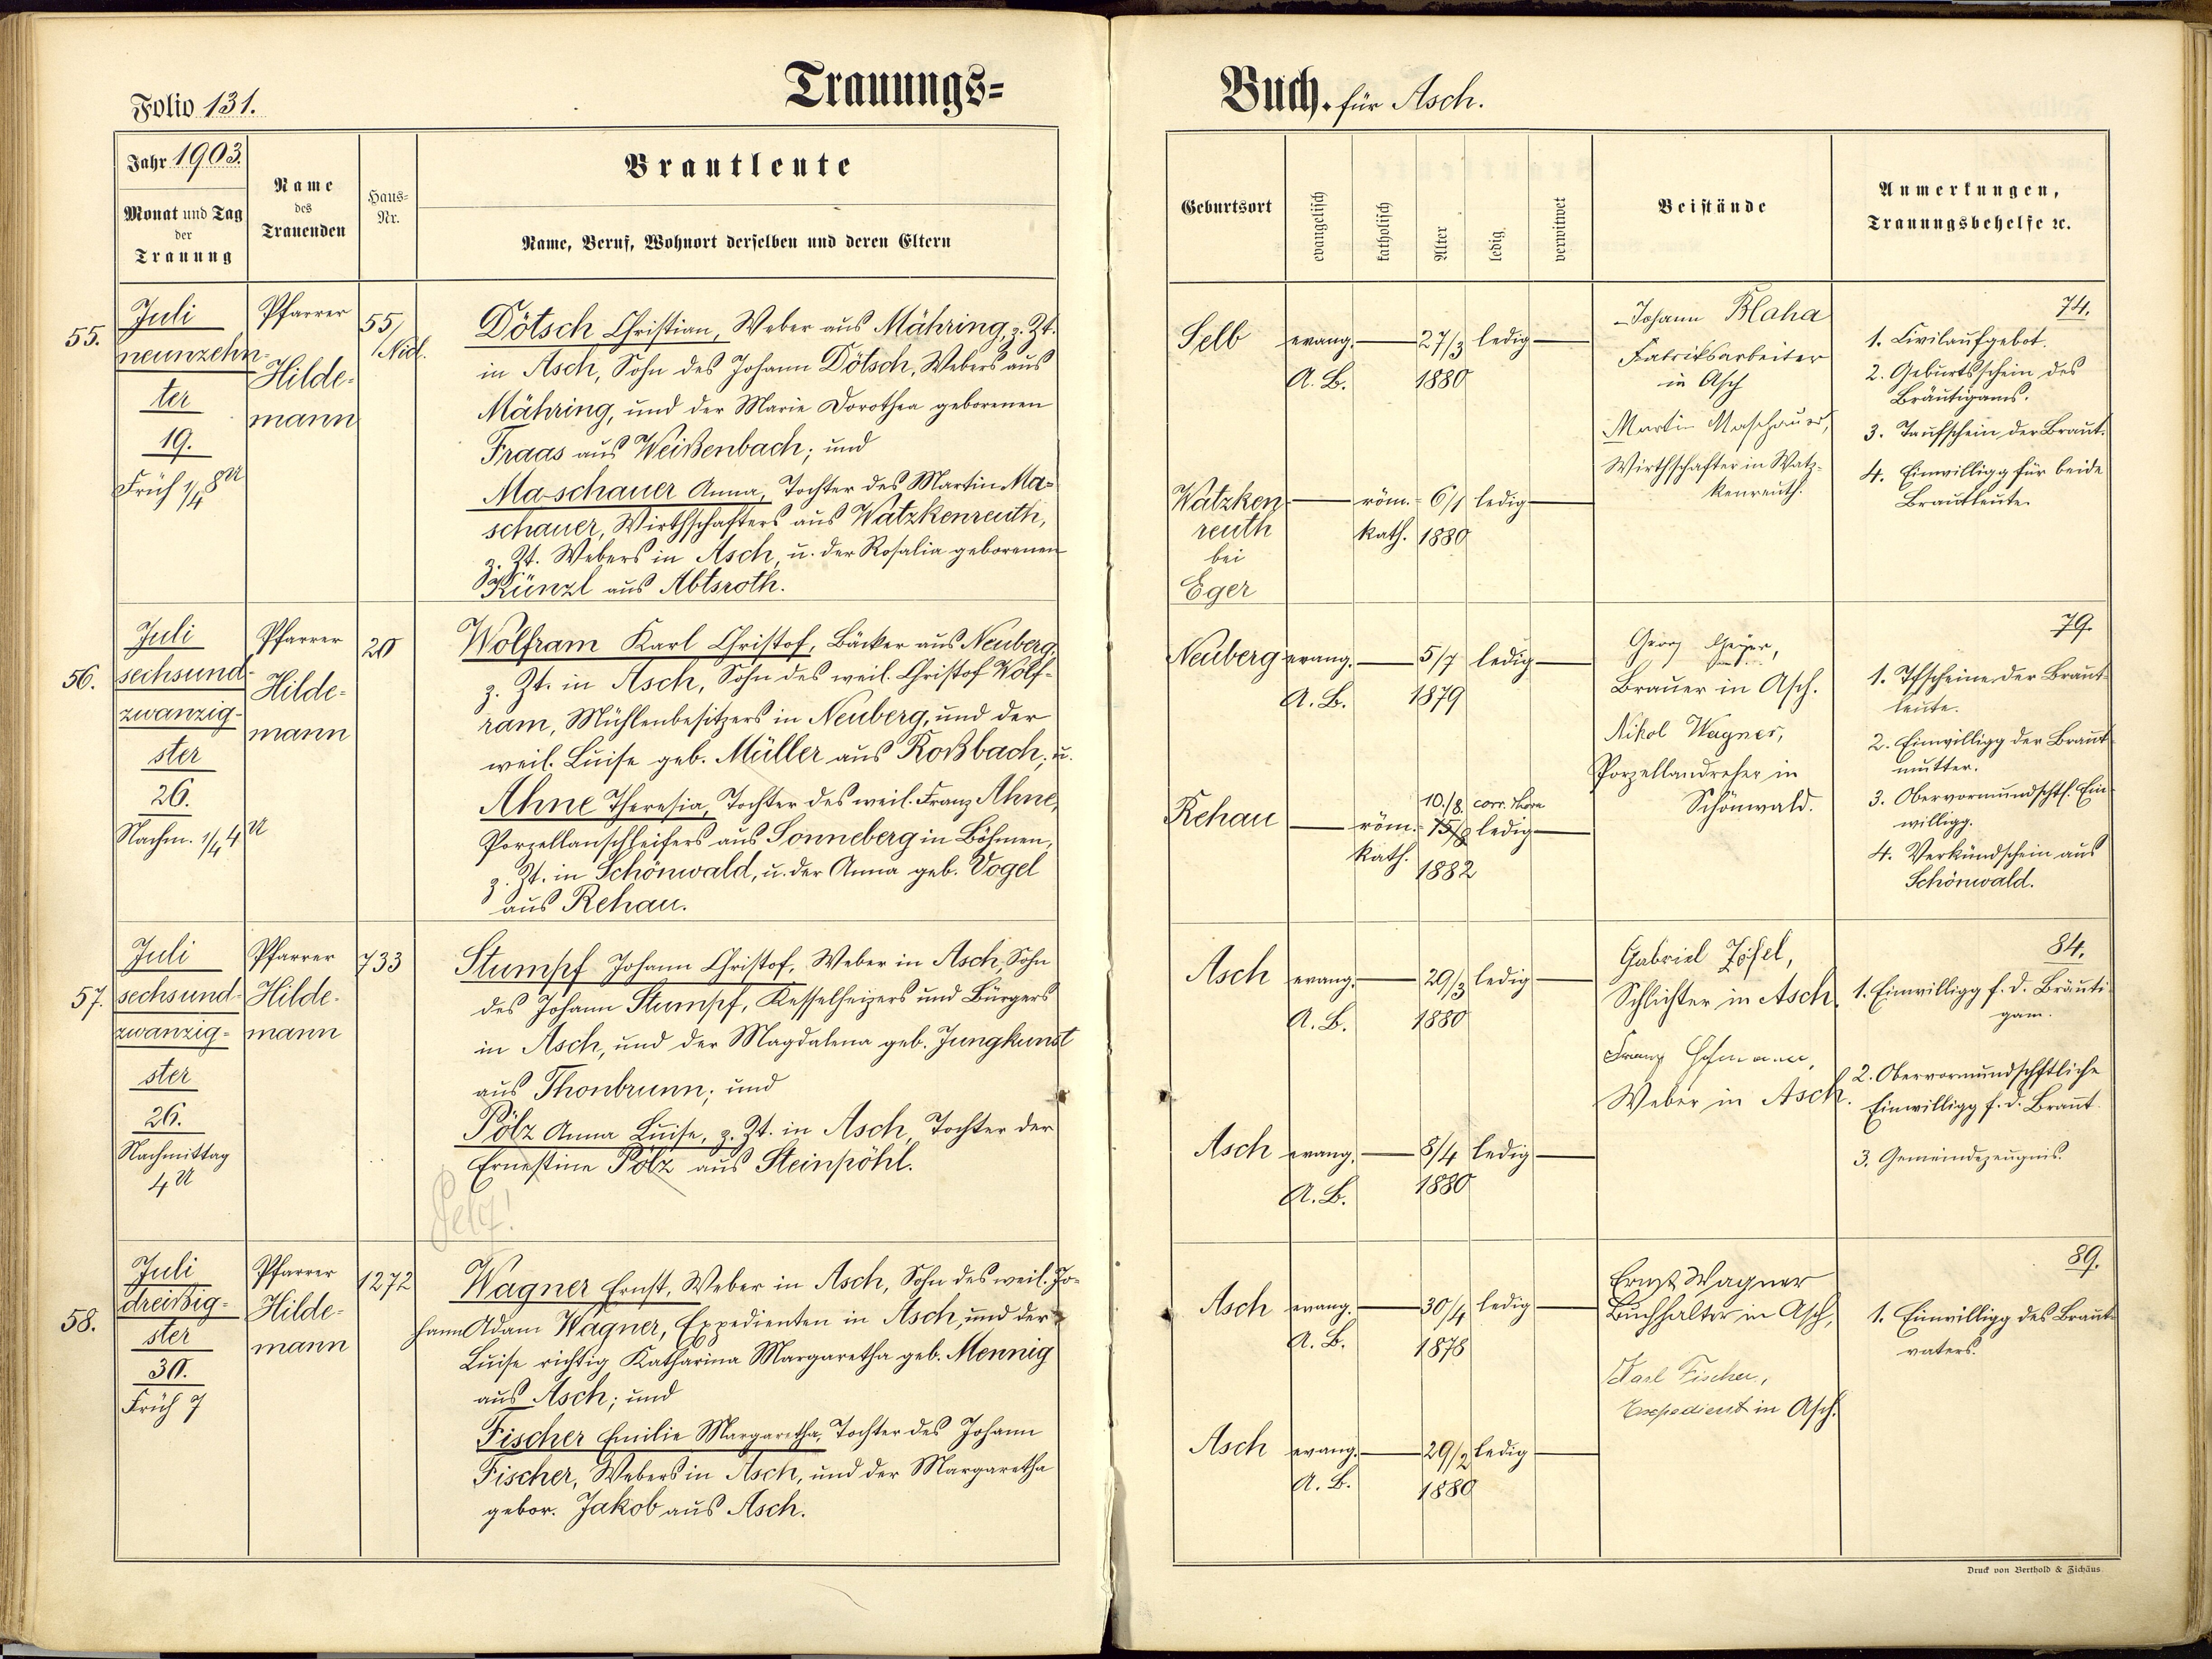 Folio 131.
Trauungs=
Jahr 1903.
Monat und Tag
der
Trauung
Name
des
Trauenden
Haus=
Nr.
Brautleute
Name, Beruf, Wohnort derselben und deren Eltern
55.
Juli
neunzehn-
ter
19.
Früh 1/4 8 U
Pfarrer
Hilde-
mann
55/
Nied.
Dötsch Christian, Weber aus Mähring, z. Zt.
in Asch, Sohn des Johann Dötsch, Webers aus
Mähring, und der Marie Dorothea geborenen
Fraas aus Weißenbach; und
Maschauer Anna, Tochter des Martin Ma=
schauer, Wirthschafters aus Watzkenreuth,
z. Zt. Webers in Asch, u. der Rosalia geborenen
Künzl aus Abtsroth.
56.
Juli
sechsund-
zwanzig-
ster
26.
Nachm. 1/4 4 U
Pfarrer
Hilde=
mann
20
Wolfram Karl Christof, Bäcker aus Neuberg,
z. Zt. in Asch, Sohn des weil. Christof Wolf-
ram, Mühlenbesitzers in Neuberg, und der
weil. Luise geb. Müller aus Roßbach; u.
Ahne Theresia, Tochter des weil. Franz Ahne,
Porzellanschleifers aus Sonneberg in Böhmen,
z. Zt. in Schönwald, u. der Anna geb. Vogel
aus Rehau.
57.
Juli
sechsund-
zwanzig=
ster
26.
Nachmittag
4 U
Pfarrer
Hilde-
mann
733
Stumpf Johann Christof, Weber in Asch, Sohn
des Johann Stumpf, Kesselheizers und Bürgers
in Asch, und der Magdalena geb. Jungkunst
aus Thonbrunn; und
Pölz Anna Luise, z. Zt. in Asch, Tochter der
Ernestine Pölz aus Steinpöhl.
Pelz!
58.
Juli
dreißig-
ster
30.
Früh 7
Pfarrer
Hilde=
mann
1272
Wagner Ernst, Weber in Asch, Sohn des weil. Jo=
hann Adam Wagner, Expedienten in Asch, und der
Luise richtig Katharina Margaretha geb. Mennig
aus Asch; und
Fischer Emilie Margaretha, Tochter des Johann
Fischer, Webers in Asch, und der Margaretha
gebor. Jakob aus Asch.
Buch. für Asch.
Geburtsort
evangelisch
katholisch
Alter
ledig
verwitwet
Beistände
Anmerkungen,
Trauungsbehelfe ꝛc.
Selb evang. 27/3 ledig
A. B. 1880
Watzken röm.= 6/1 ledig
reuth kath. 1880
bei
Eger
Johann Blaha
Fabriksarbeiter
in Asch
Martin Maschauer,
Wirthschafter in Watz-
kenreuth.
74.
1. Civilaufgebot.
2. Geburtsschein des
Bräutigams.
3. Taufschein der Braut.
4. Einwilligg für beide
Brautleute.
Neuberg evang. 5/7 ledig
A. B. 1879
10./8. corr. Thorn
Rehau röm.= 15/8 ledig
kath. 1882
Georg Geyer,
Brauer in Asch.
Nikol Wagner,
Porzellandreher in
Schönwald.
79.
1. Tfscheine der Braut-
leute.
2. Einwilligg der Braut-
mutter.
3. Obervormundschtl. Ein-
willigg.
4. Verkündschein aus
Schönwald.
Asch evang. 29/3 ledig
A. B. 1880
Asch evang. 8/4 ledig
A. B. 1880
Gabriel Zöfel,
Schlichter in Asch.
Franz Hofmann,
Weber in Asch.
84.
1. Einwilligg f. d. Bräuti-
gam.
2. Obervormundschftliche
Einwilligg f. d. Braut.
3. Gemeindezeugnis.
Asch evang. 30/4 ledig
A. B. 1878
Asch evang. 29/2 ledig
A. B. 1880
Ernst Wagner
Buchhalter in Asch,
Karl Fischer,
Expedient in Asch.
89.
1. Einwilligg des Braut-
vaters.
Druck von Berthold & Fichäus